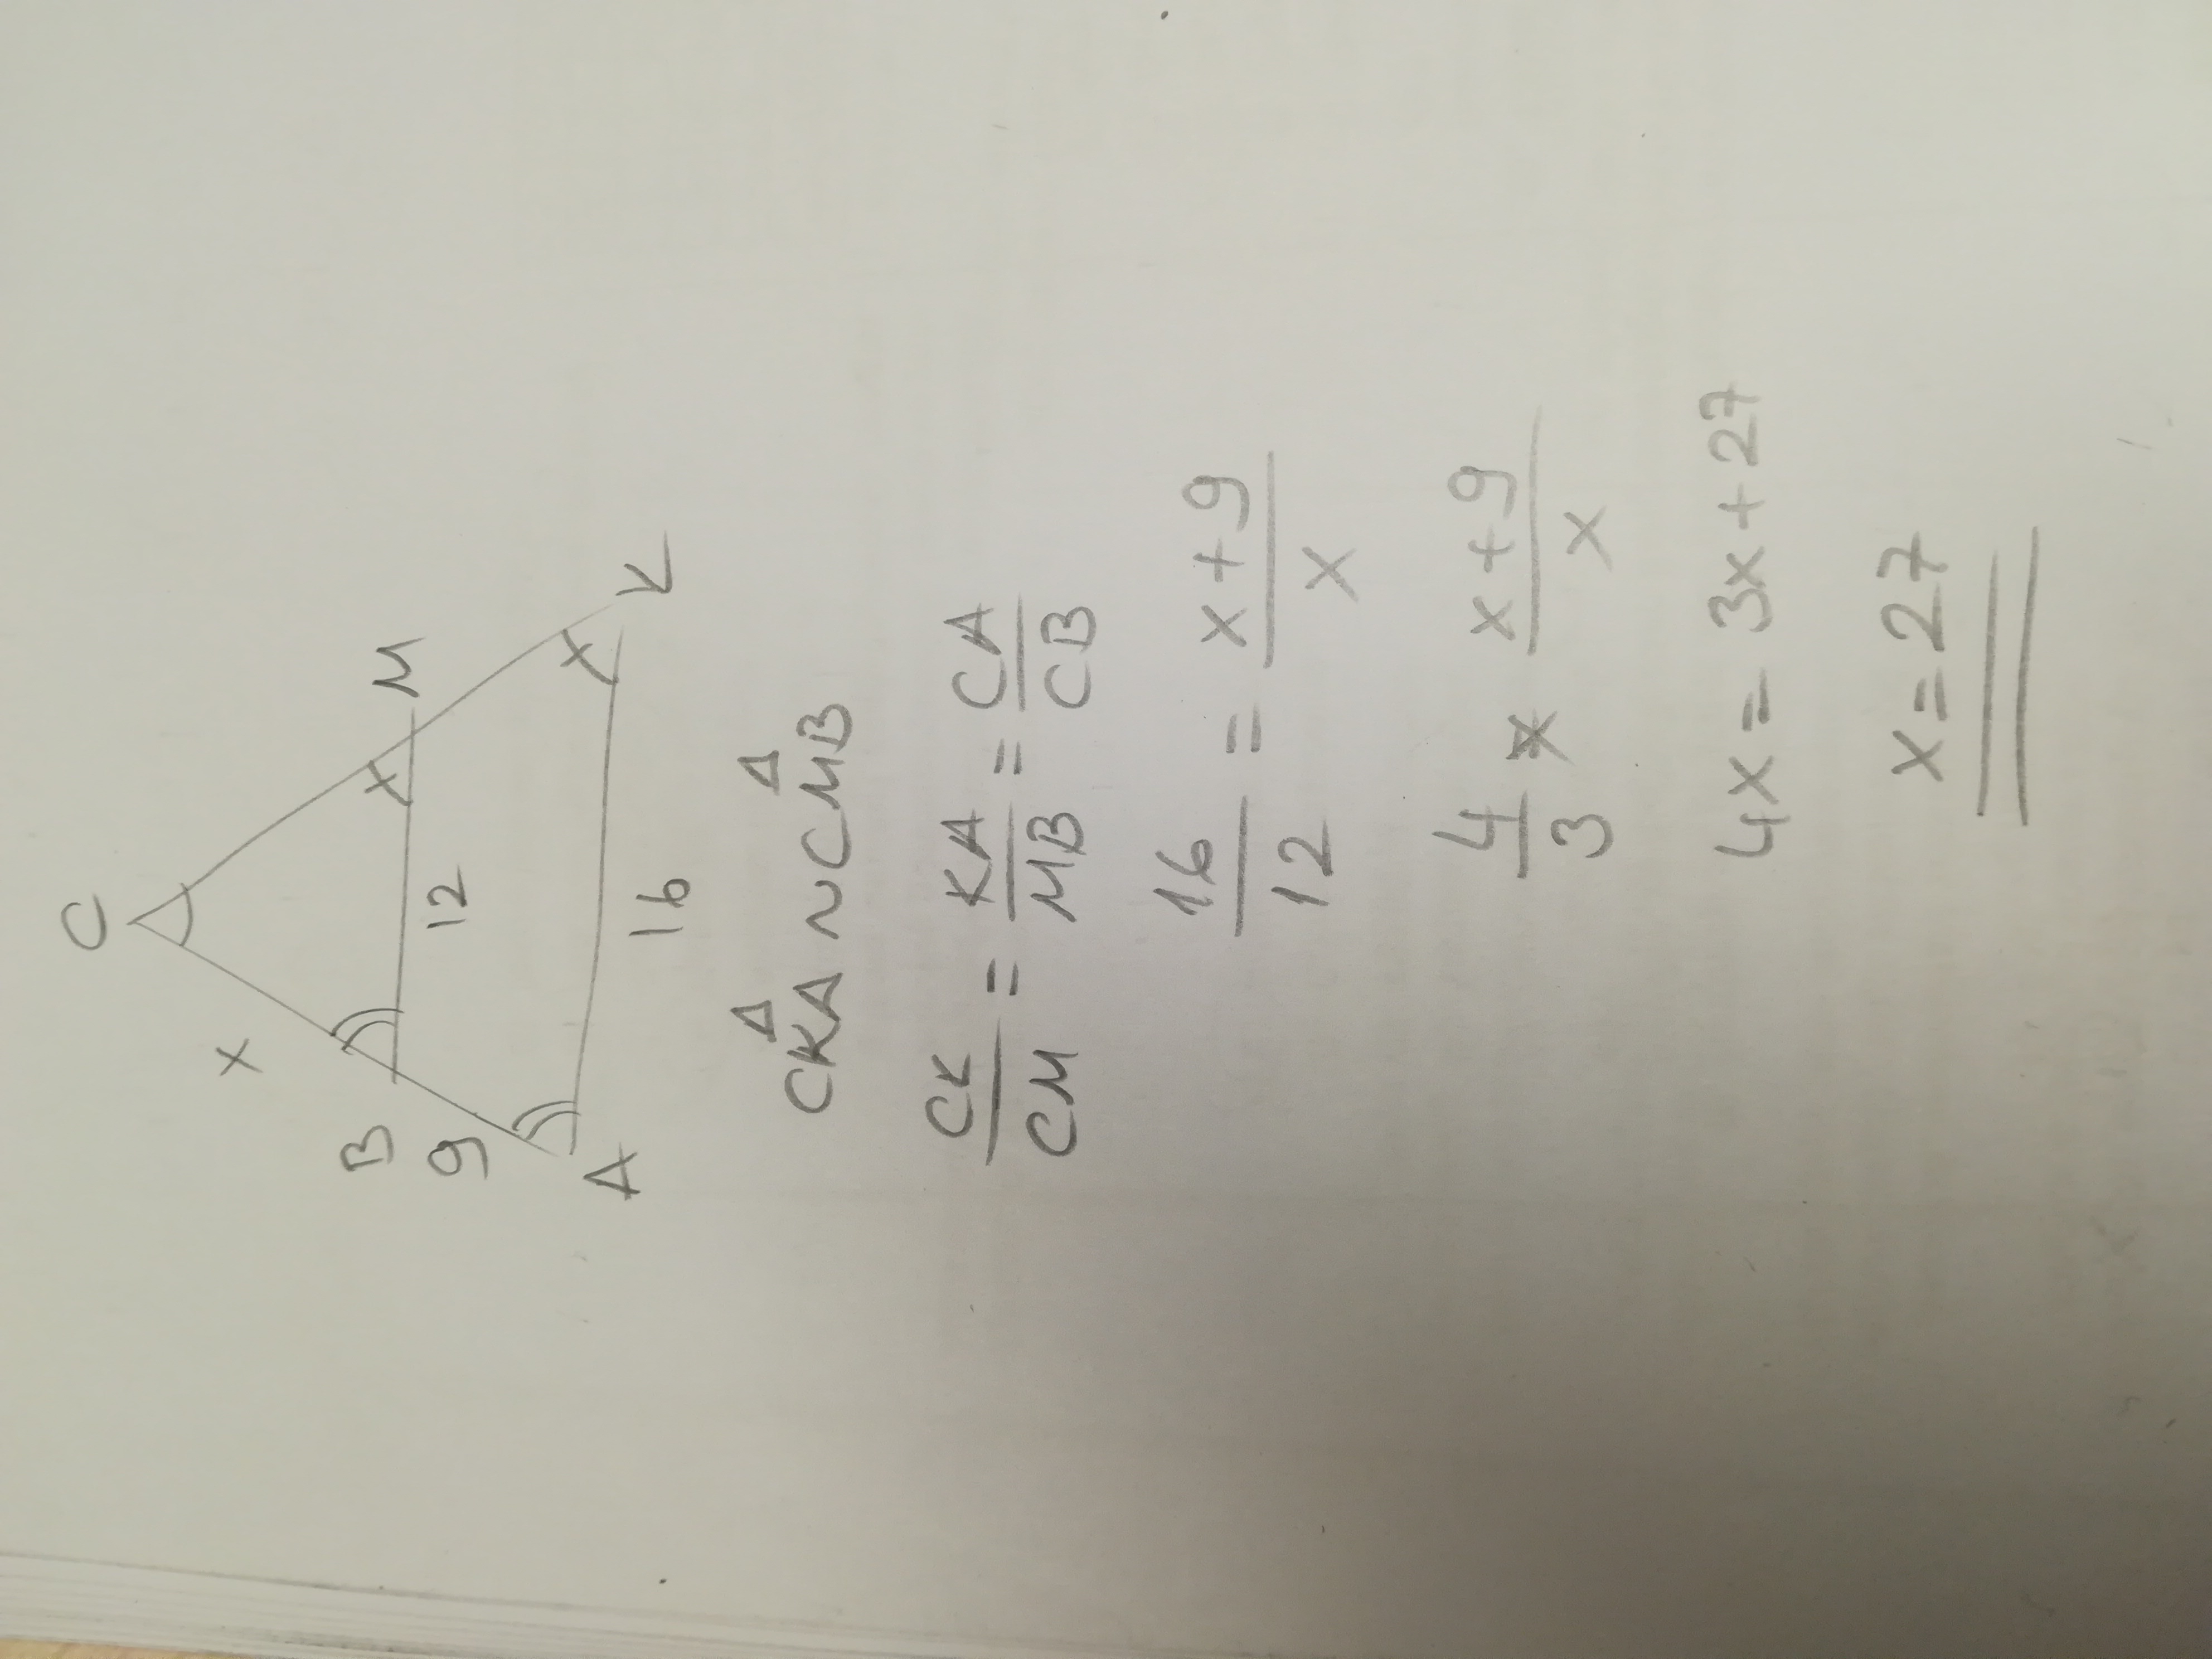 C
x
M
B
12
9
K
A
16
CKA ~ CMB
CK/CM = KA/MB = CA/CB
16/12 = x+9/x
4/3 = x+9/x
4x = 3x+27
x=27